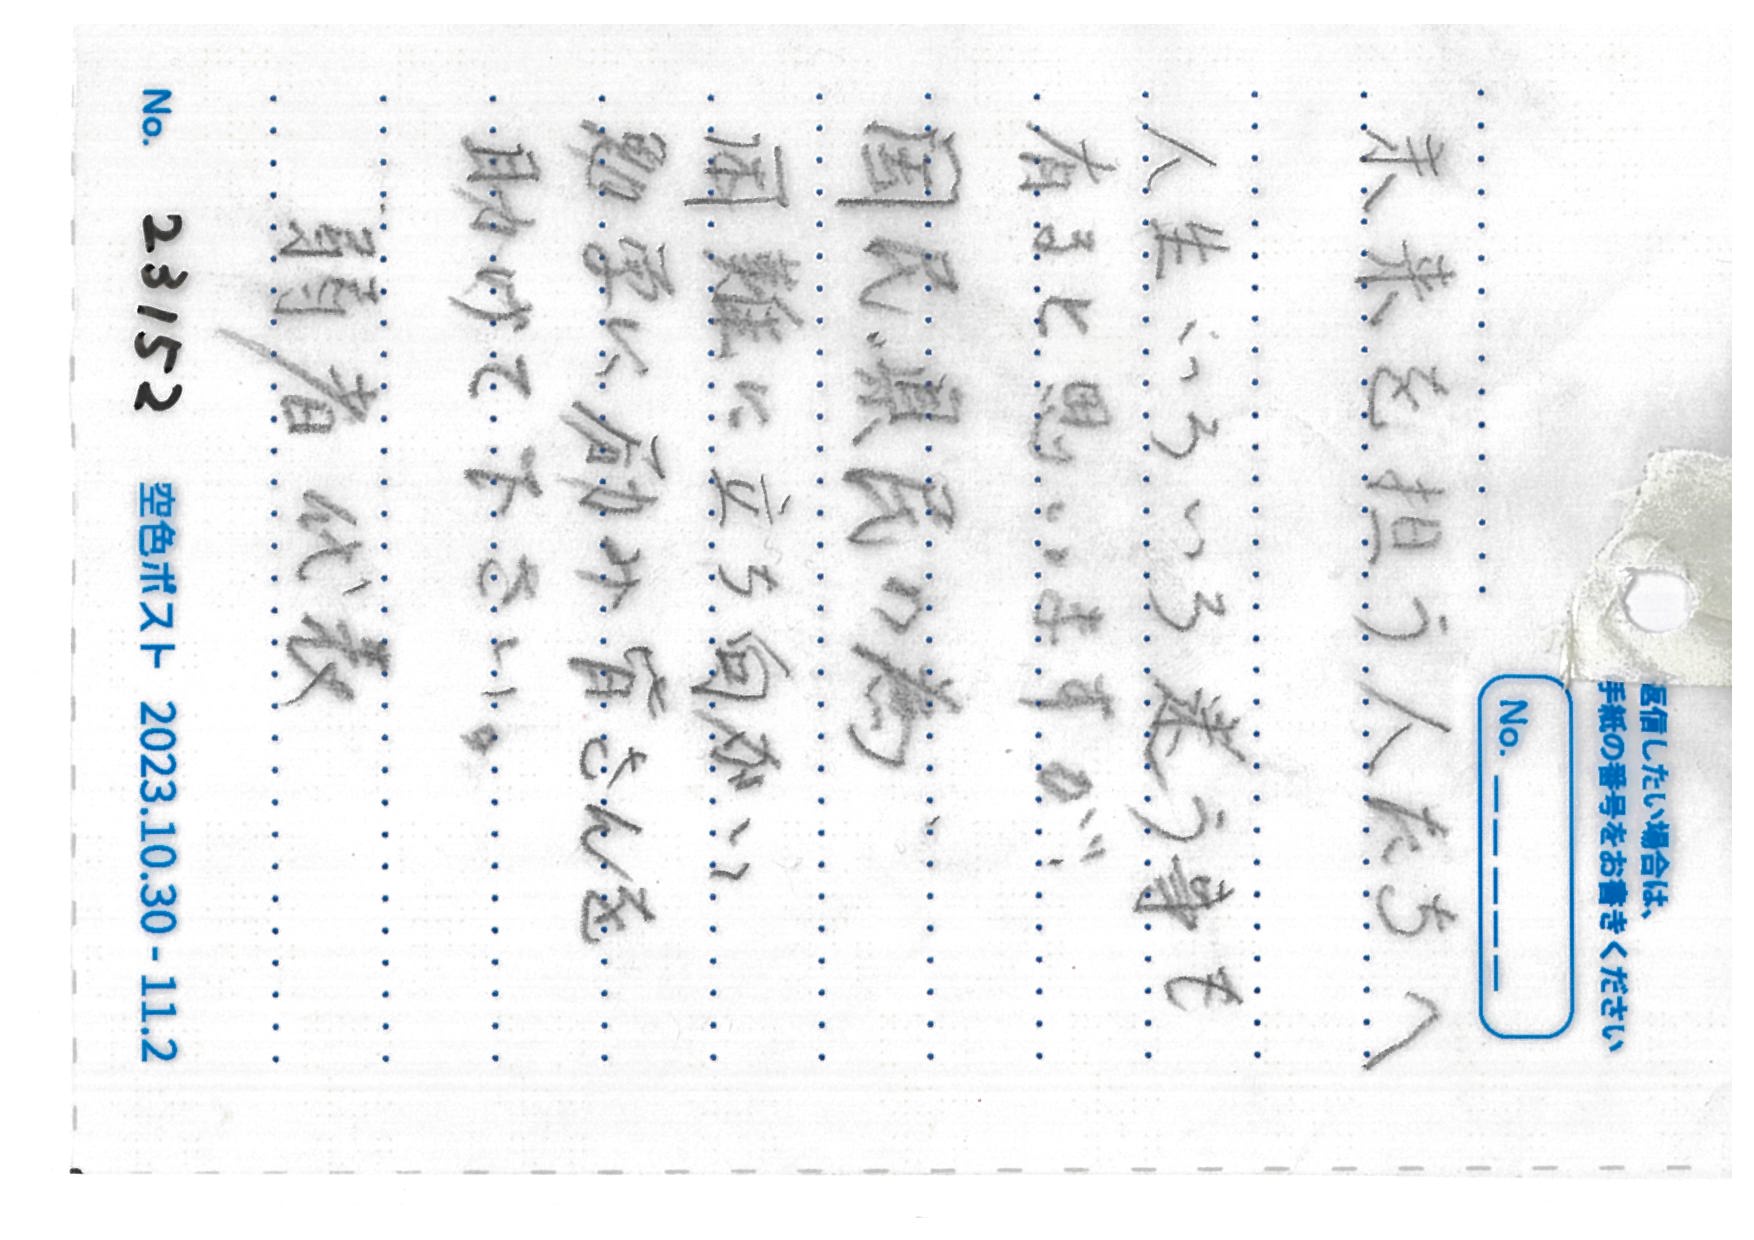 返信したい場合は、
手紙の番号をお書きください
No. _ _ _ _ _
未来を担う人たちへ
人生いろいろ迷う事も
有ると思いますが
国民、県民の為
困難に立ち向かい
勉学に励み皆さんを
助けて下さい。
弱者代表
No. 23152 空色ポスト 2023.10.30 - 11.2